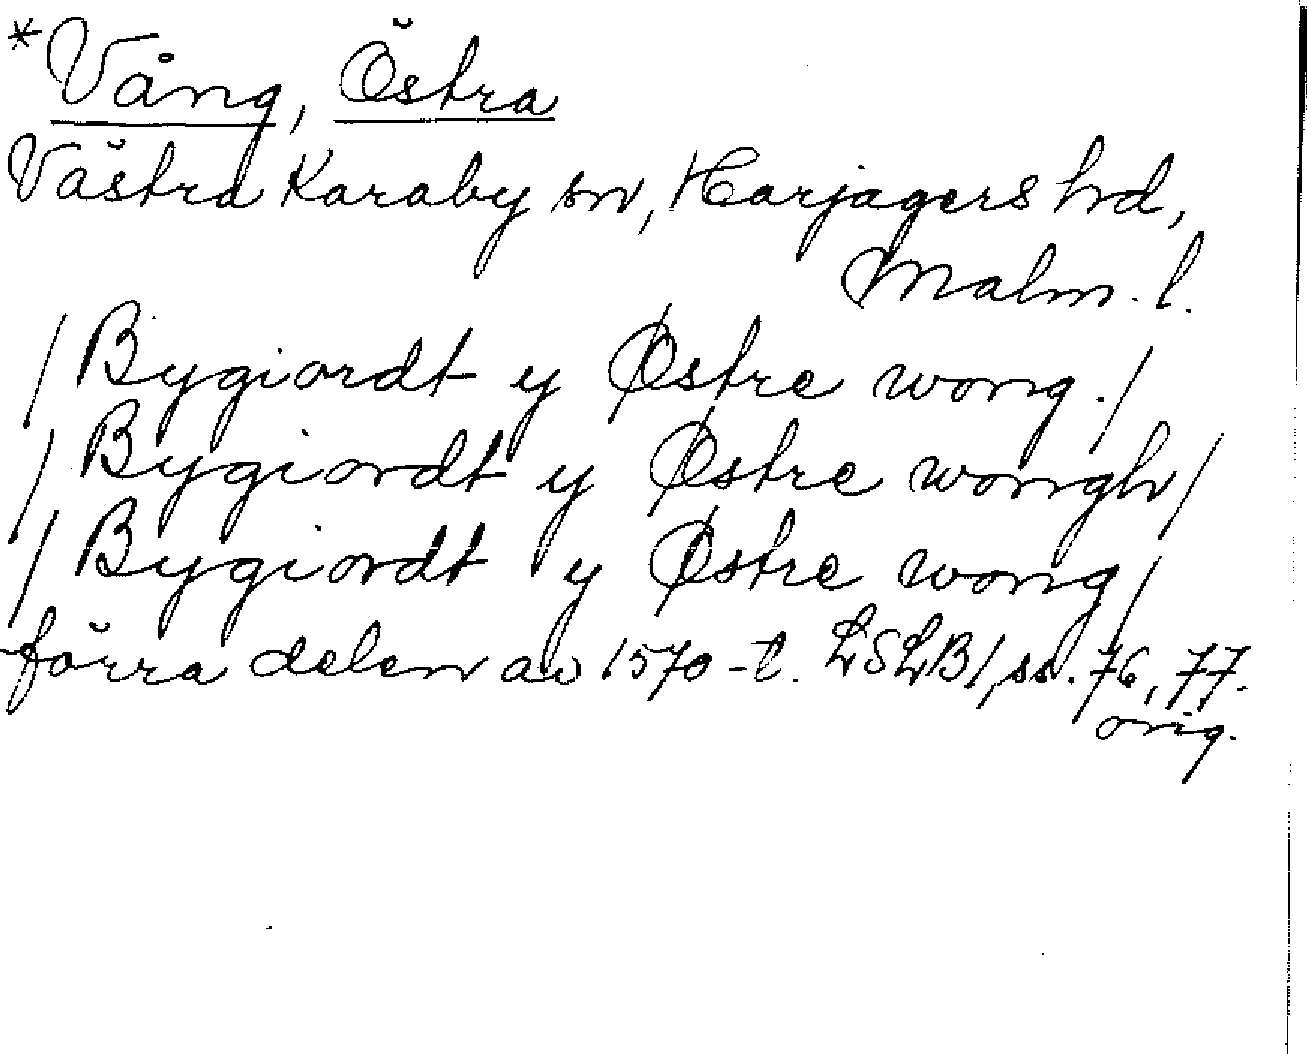 *Vång, Östra
Västra Karaby sn, Harjagers hd,
Malm. l.
/ Bygiordt y Østre wong. /
/ Bygiordt y Østre wongh /
/ Bygiordt y Østre wong /
förra delen av 1570-t. LSLB1, ss. 76, 77.
orig.